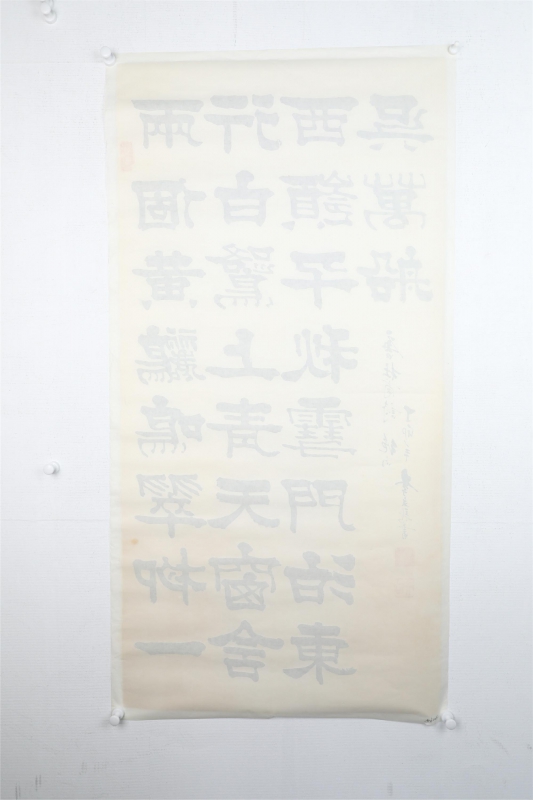 兩個黃鸝鳴翠柳一
行白鷺上青天窗含
西嶺千秋雪門泊東
吳萬船